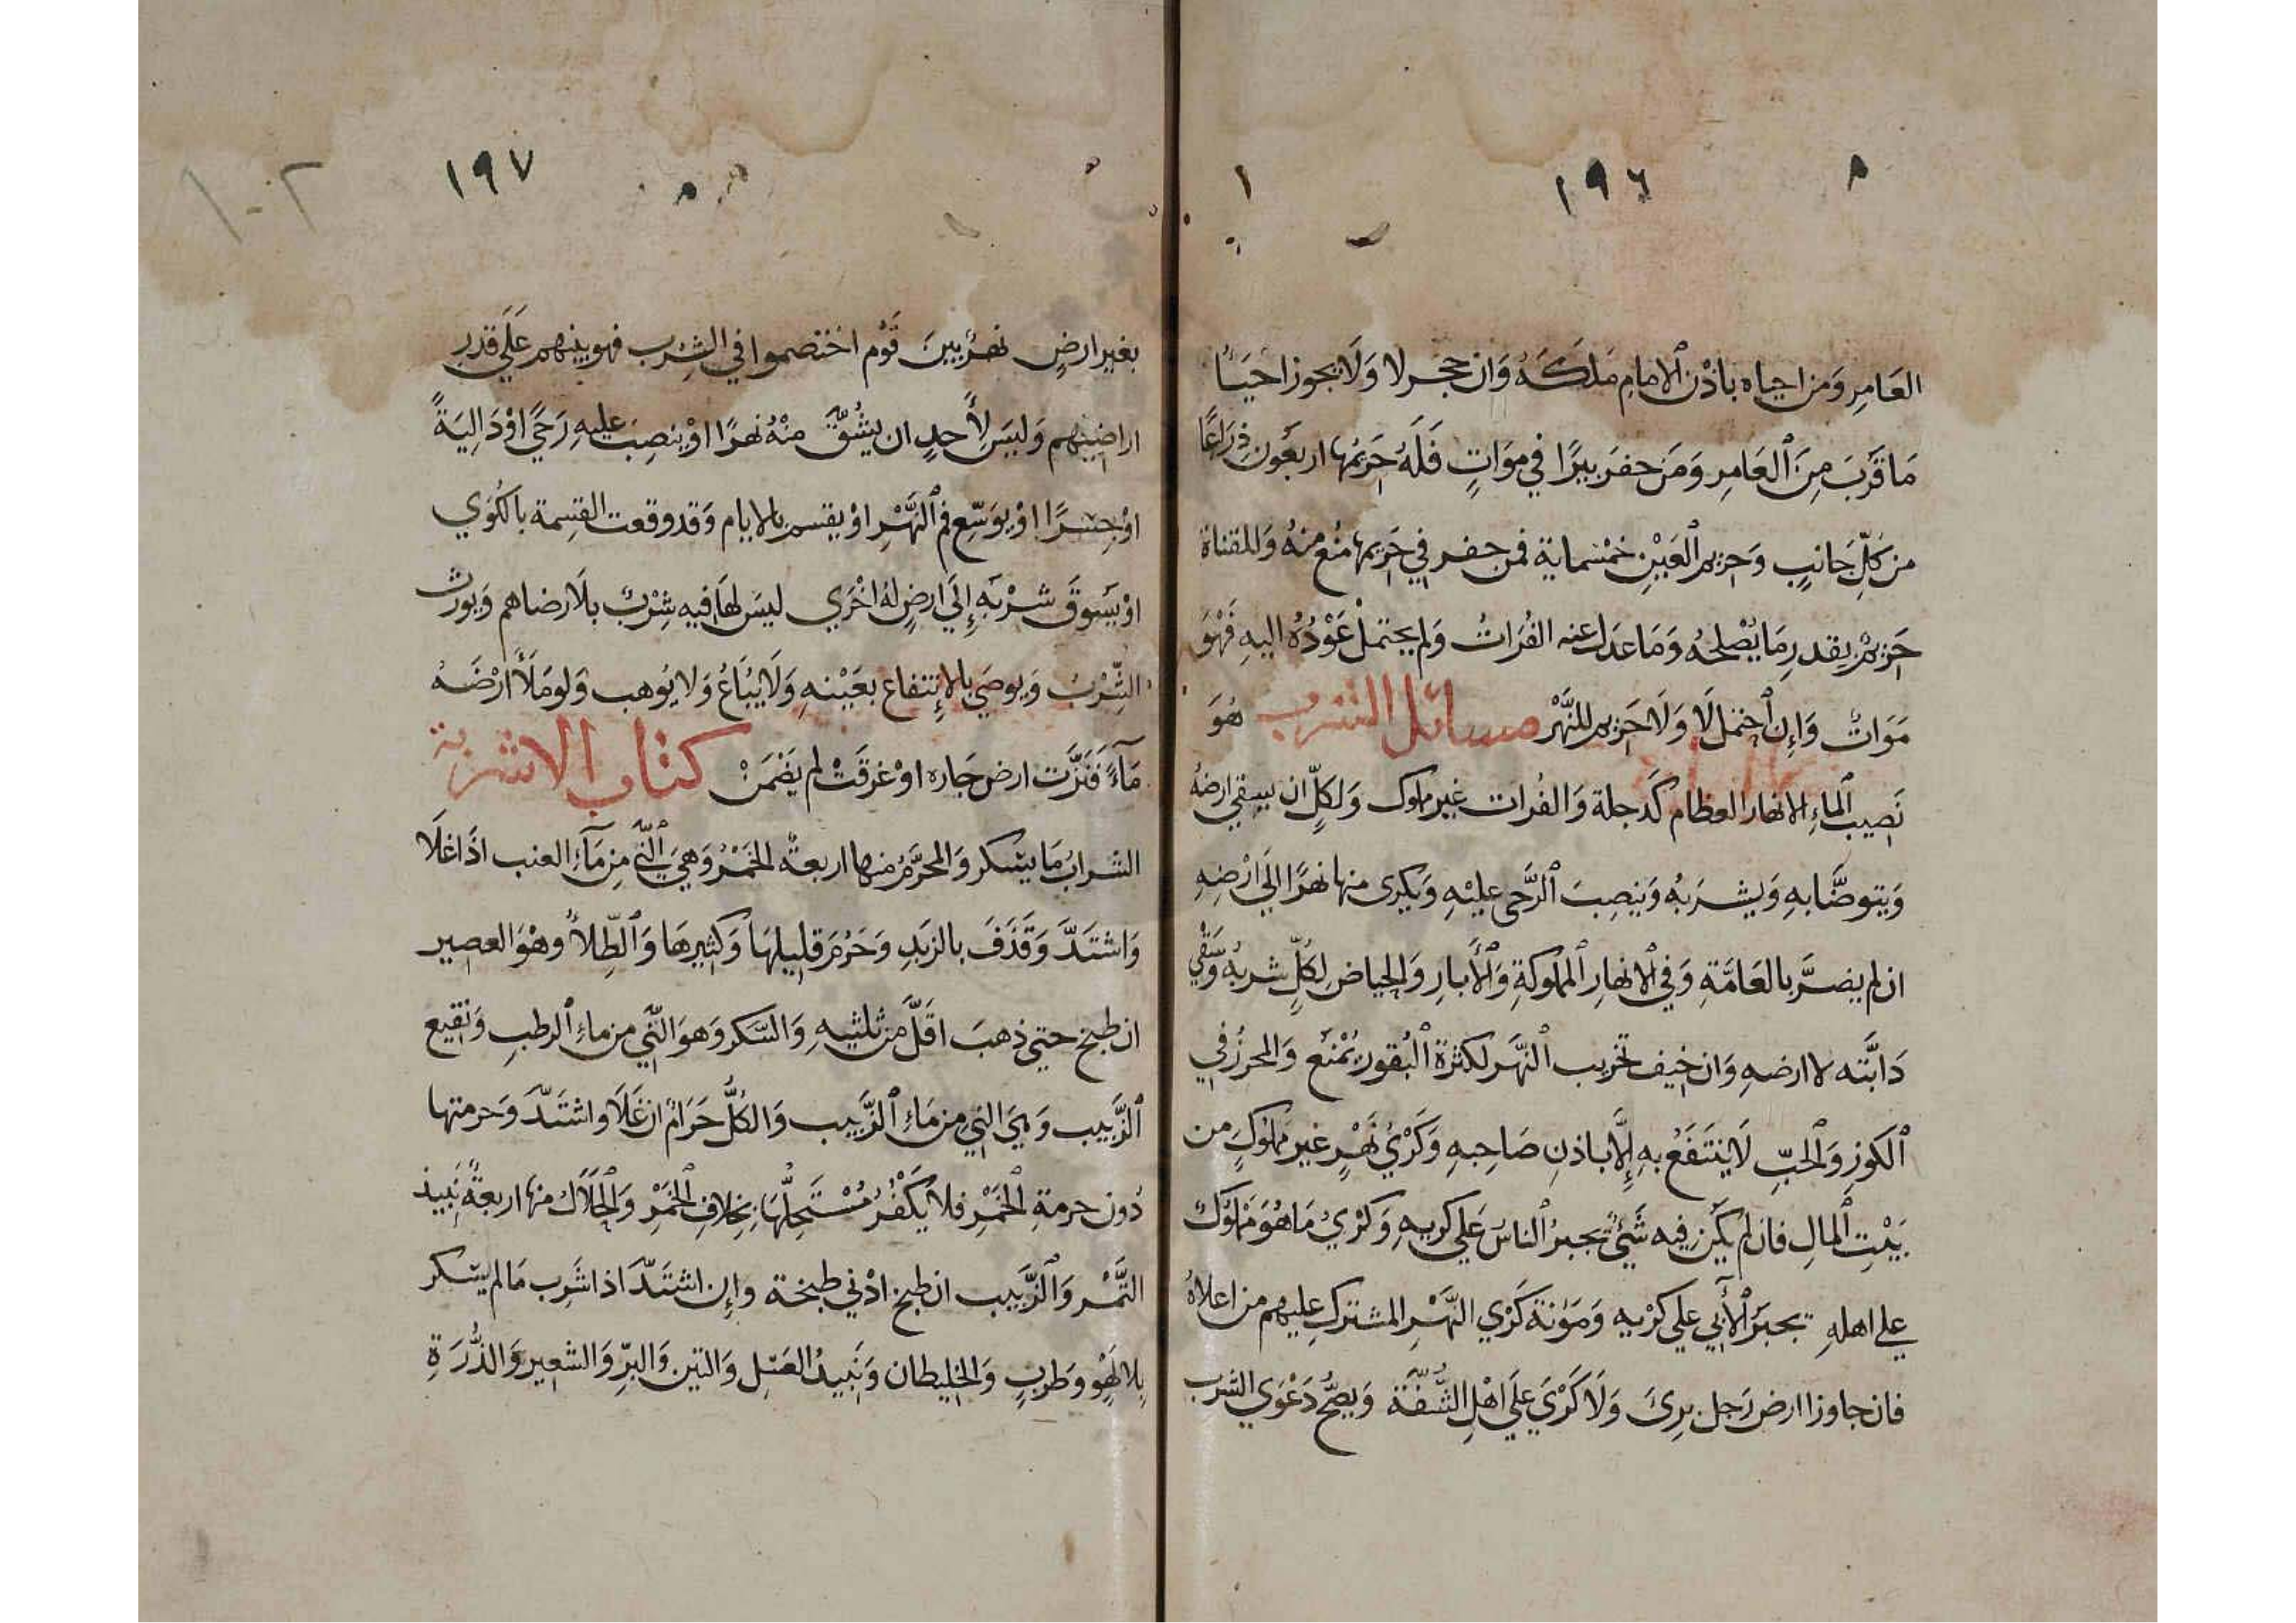 ١٩٦
العَامِرِ وَمَن احياه باذْنِ الامامِ مَلَكَهُ وَان حجر لا وَلَا يجوز احيَاءُ
مَا قَرُبَ مِنَ العَامِرِ وَمَن حفر بيرًا في مَوَاتٍ فَلَهُ حَرِيمُها اربعُون ذِرَاعًا
من كلِّ جَانبٍ وَحريم العَيْنِ خمسماية فمن حفر في حَرِيمها مُنع منهُ وَللقناة
حَرِيمٌ بقدر مَا يُصْلِحُه وَمَا عدل عنه الفُرَاتُ وَلم يحتمل عَوْدُهُ اليهِ فَهْوَ
مَوَاتٌ وَإِن احتمل لَا وَلَا حَريم للنَّهْرِ مسائل الشرب هُوَ
نَصِيب الماءِ الانهار العظام كَدجلة وَالفُرات غير مملوك وَلكلّ ان يسقي ارضهُ
وَيتوضَّا بهِ وَيشربُه وَينصِبَ الرَّحى عليْهِ وَيكرى منها نهرًا اِلَى ارْضِهِ
ان لم يضرَّ بالعَامَّةِ وَفي الانهارِ المملوكةِ وَالأبارِ وَالحياض لكلٍّ شربهُ وَسَقْي
دَابَّته لا ارضهِ وَان خيف تخريب النَّهْر لكثرة البُقور يُمْنَع وَالمحرزُ في
الكوزِ وَالحُبِّ لَا يُنتَفَعُ بهِ إِلَّا باذنِ صَاحِبهِ وَكَرْيُ نَهْرٍ غير مملُوكٍ من
بَيْتِ المالِ فان لم يكن فيه شَئٌ يجبرُ الناسُ عَلي كريهِ وَكرْيُ مَا هُوَ مَمْلوُكٌ
علي اهلهِ يجبَرُ الأبي علي كرْيهِ وَمَؤنة كَرْيِ النَّهْرِ المشتركِ عليهم من اعلاهُ
فان جاوز ارض رَجل برِىَ وَلَا كَرْيَ عَلَي اهْلِ الشَّفَّة وَيصحُّ دَعْوَي الشرب
١٩٧
بغير ارضٍ نهرٌ بينَ قَوْم اختصموا في الشِرب فهو بينهم عَلَي قدر
اراضيهم وَليسَ لأَحدٍ ان يشُقَّ منْهُ نهرًا اوْ ينصِبَ عليهِ رَحَيً اوْ دَالِيَةً
اوْ جِسْرًا اوْ يوَسِّع فم النَّهْرِ اوْ يقسم بالايام وَقد وقعت القسِمة بالكُوَي
اوْ يَسُوقَ شرْبَه إلَي ارضٍ لهُ اخْرَي ليسَ لهَا فيه شِرْبٌ بلَا رضاهم وَيورث
الشِّرْبُ وَيوصَي بالإنتفاع بعَيْنهِ وَلَا يُبَاعُ وَلا يُوهب وَلو مَلَأَ ارْضَهُ
مَآءً فَنَزَّت ارض جَاره اوْ غرقَتْ لم يَضْمَنْ كتاب الاشربة
الشرابُ مَا يسْكر وَالمحرَّمُ منها اربعةٌ الخمْرُ وَهيَ النِّيُّ مِن مَآءِ العنب اذَا غلَا
وَاشتدَّ وَقَذَفَ بالزبَدِ وَحَرُمَ قليلهَا وَكثيرهَا وَالطِّلاُ وهْوَ العصير
ان طبخ حتي ذهبَ اقَلُّ من ثلثيهِ وَالسَّكر وَهوَ النِّي من ماءِ الرطبِ وَنَقيع
الزَّبيب وَهيَ النِّي من مَاءِ الزَّبيب وَالكُلُّ حَرَامٌ ان غَلَا واشتَدَّ وَحرمتها
دُون حرمةِ الخمْرِ فلا يُكفَّرُ مُسْتَحِلُّهَا بخِلافِ الخمْرِ وَالحَلَال منها اربعةٌ نَبيذ
التَّمْر وَالزَّبيب ان طبخ ادْني طبخة وإن اشتَدَّ اذا شَرِب مَا لم يسْكر
بلا لَهْوٍ وَطربٍ وَالخليطان وَنَبيذُ العَسَل وَالتين وَالبرِّ وَالشعير وَالذُّرَةِ